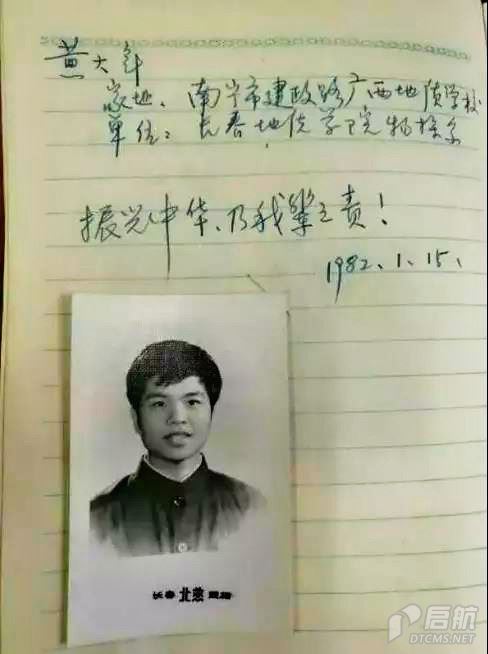 黄大年
家址：南宁市建政路广西地质学校
单位：长春地院学院物探系
振兴中华、乃我辈之责！
1982.1.15.
长春 北燕 照相
启航
DTCMS.NET